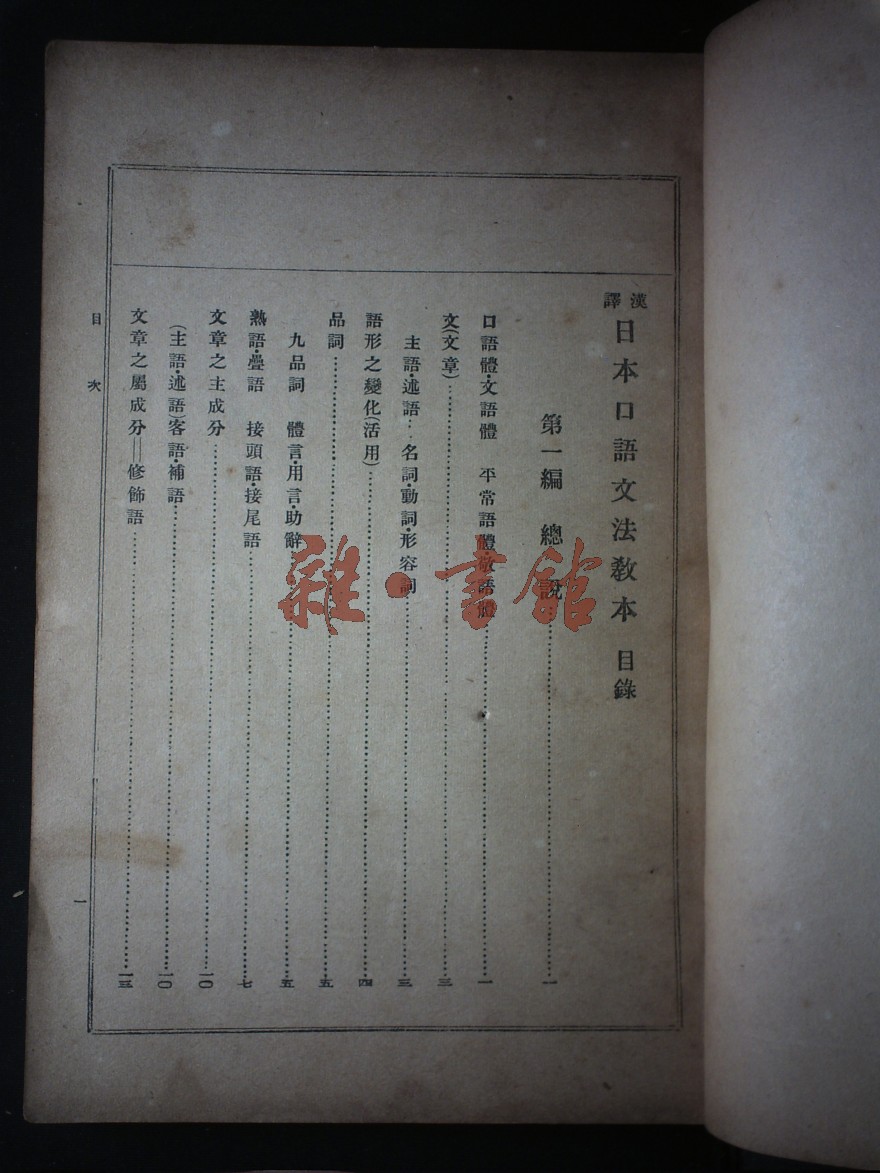 漢譯 日本口語文法敎本 目錄
第一編 總說……一
口語體・文語體 平常語體・敬語體……一
文(文章)……三
主語・述語：名詞・動詞・形容詞……三
語形之變化(活用)……四
品詞……五
九品詞 體言・用言・助辭……五
熟語・疊語 接頭語・接尾語……七
文章之主成分……一〇
(主語・述語)客語・補語……一〇
文章之屬成分──修飾語……一三
目次
一
雜・書館